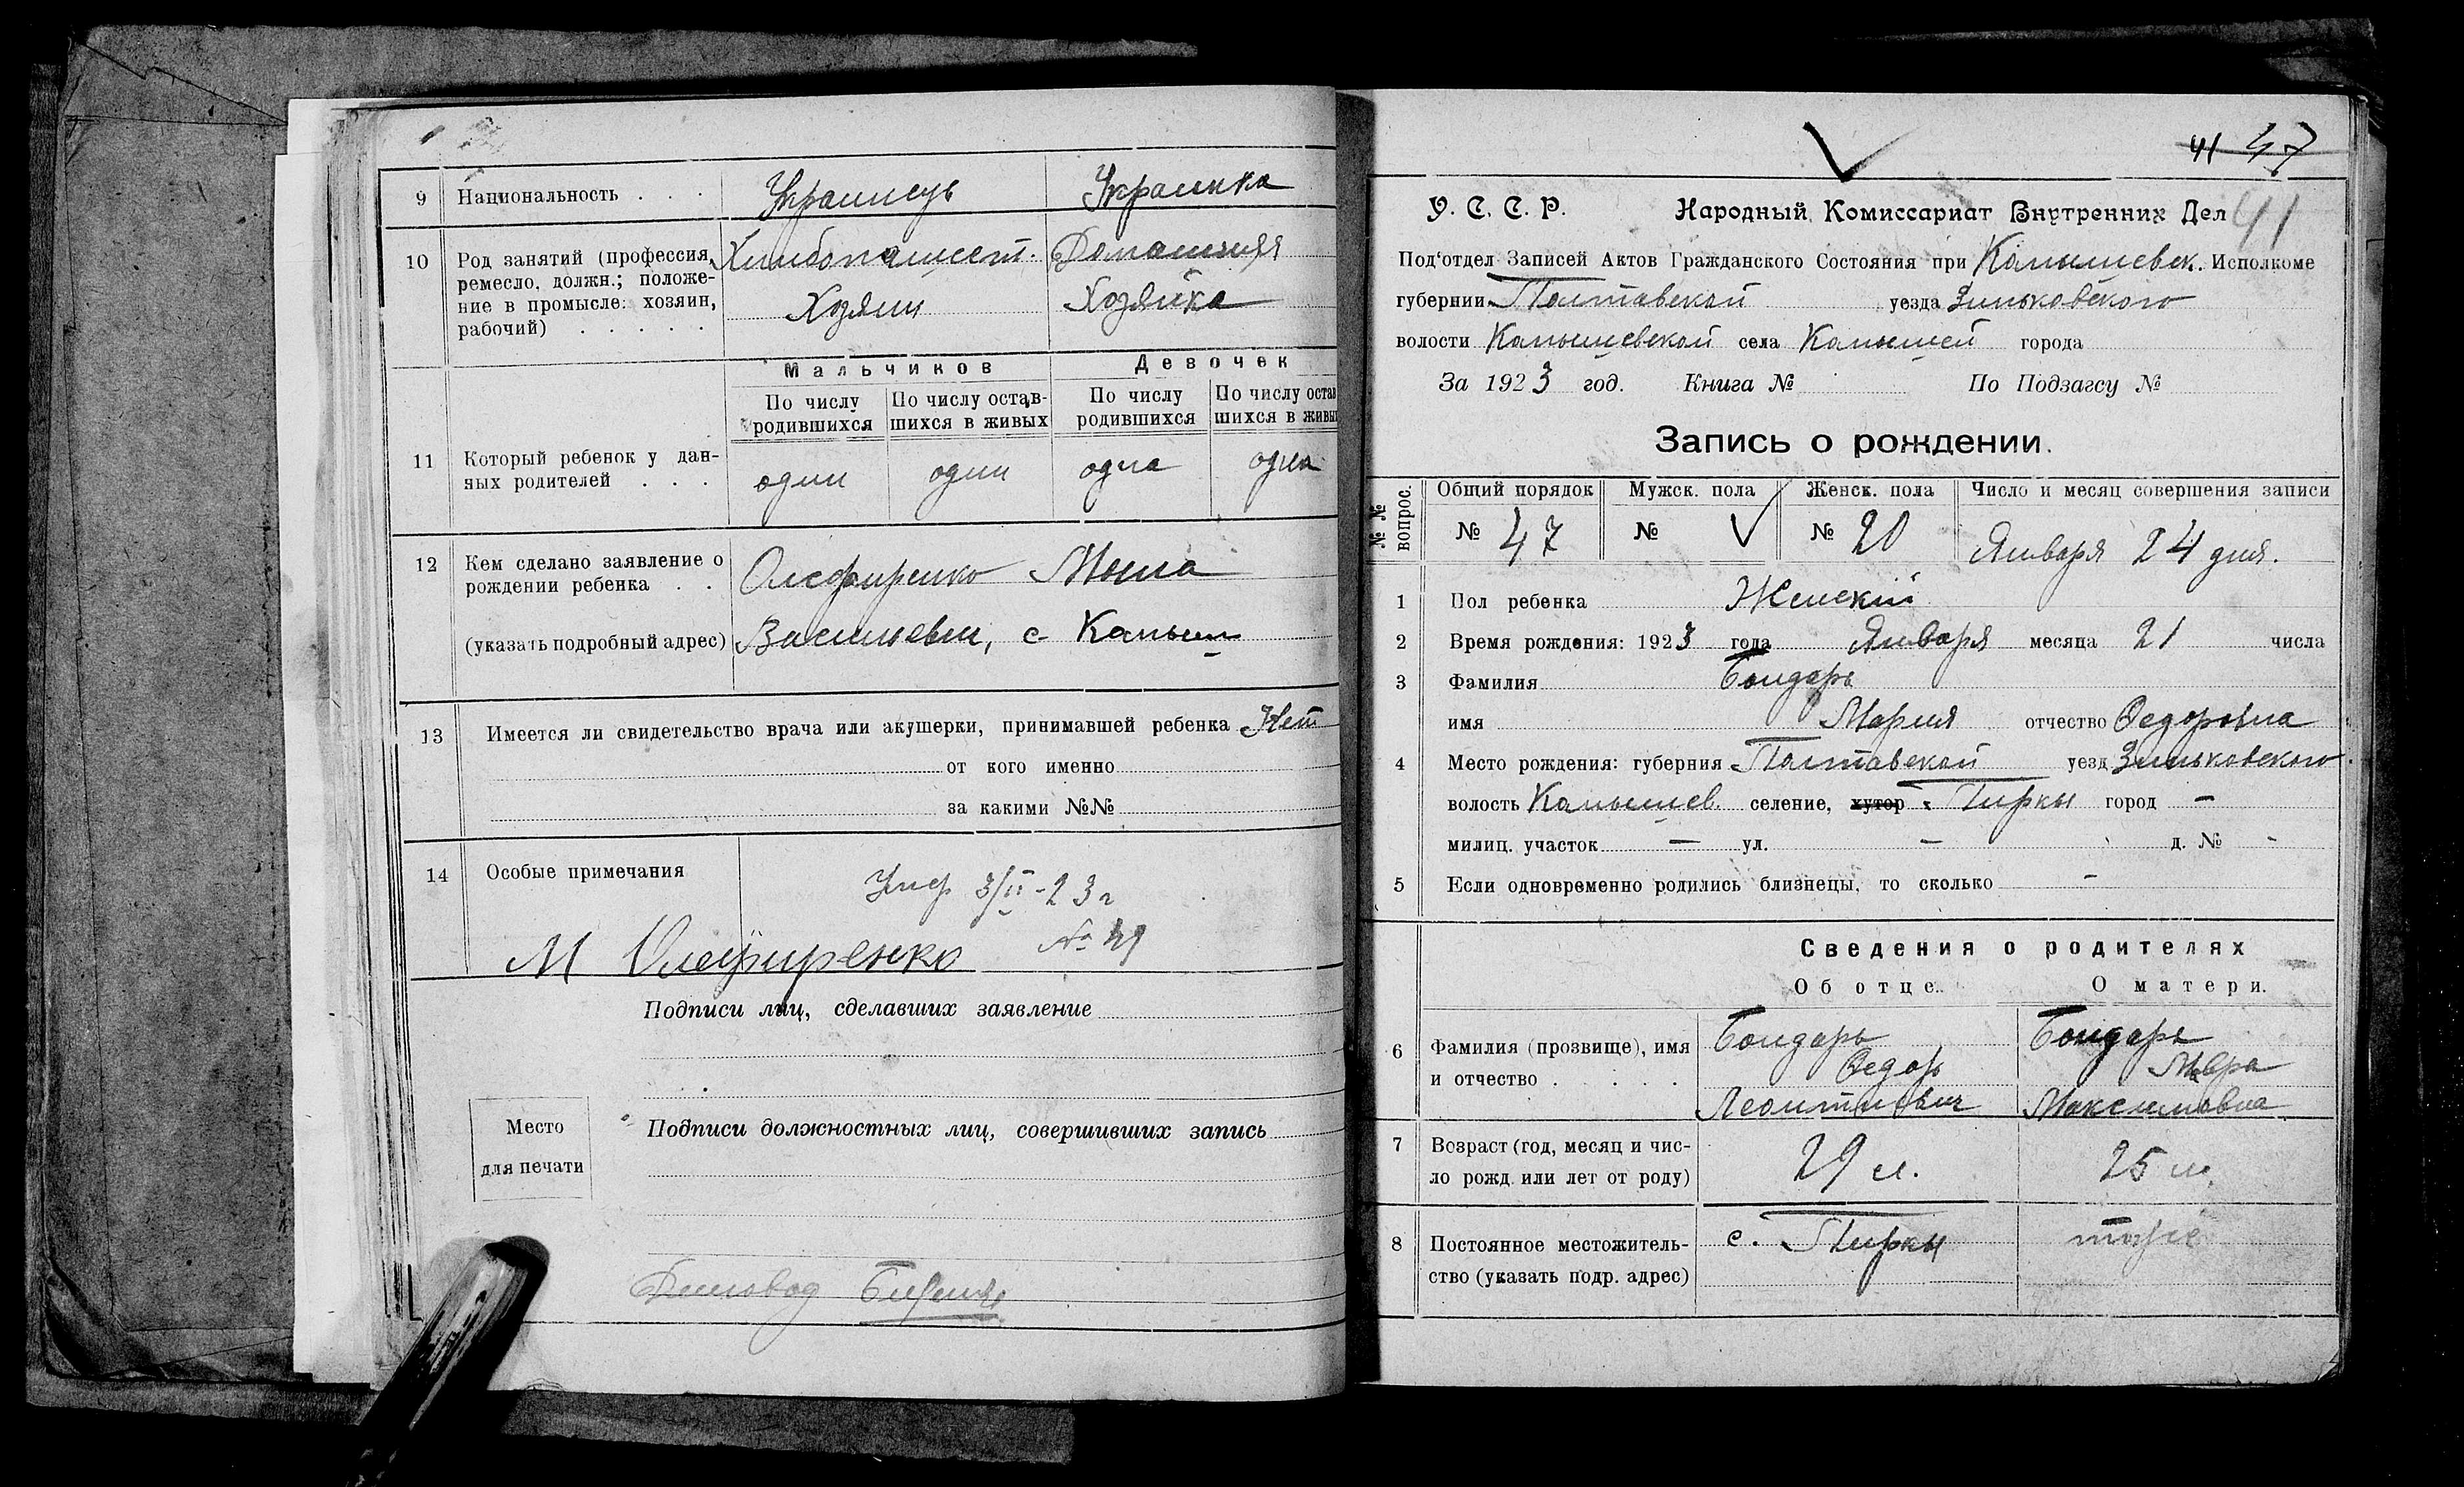 9 Национальность . . . Украинець Украинка
10 Род занятий (профессия, Хлибопашест. Домашняя
ремесло, должн.; положе-
ние в промысле: хозяин, Хозяин Хозяйка
рабочий) . . . . .
Мальчиков Девочек
По числу По числу остав- По числу По числу остав
родившихся шихся в живых родившихся шихся в живы
11 Который ребенок у дан- один один одна одна
ных родителей . . .
12 Кем сделано заявление о Олефиренко
рождении ребенка . .
(указать подробный адрес) Васильевич, с Камыши
13 Имеется ли свидетельство врача или акушерки, принимавшей ребенка Нет
от кого именно
за какими №№
14 Особые примечания
3/II-23 г
№ 49
М Олефиренко
Подписи лиц, сделавших заявление
Место
для печати
Подписи должностных лиц, совершивших запись
Деловод
41 47
У. С. С. Р. Народный Комиссариат Внутренних Дел 41
Под'отдел Записей Актов Гражданского Состояния при Камышевск. Исполкоме
губернии Полтавской уезда Зиньковского
волости Камышевской села Камышей города
За 1923 год. Книга № По Подзагсу №
Запись о рождении.
№№ вопрос. Общий порядок Мужск. пола Женск. пола Число и месяц совершения записи
№ 47 № № 20 Января 24 дня.
1 Пол ребенка Женский
2 Время рождения: 1923 года Января месяца 21 числа
3 Фамилия Бондарь
имя Мария отчество Федоровна
4 Место рождения: губерния Полтавской уезд Зиньковского
волость Камышев. селение, хутор Пирки город –
милиц. участок — ул. – д. № -
5 Если одновременно родились близнецы, то сколько -
Сведения о родителях
Об отце. О матери.
6 Фамилия (прозвище), имя Бондарь Бондарь
и отчество . . . . Федор
Леонтиевич Максимовна
7 Возраст (год, месяц и чис- 29 л. 25 л.
ло рожд. или лет от роду)
8 Постоянное местожитель- с. Пирки тоже
ство (указать подр. адрес)